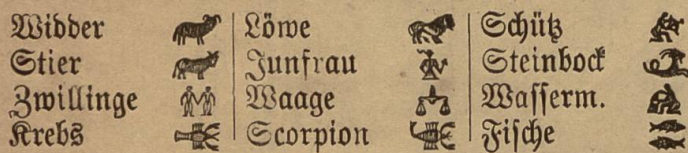 Widder
Stier
Zwillinge
Krebs
Löwe
Junfrau
Waage
Scorpion
Schütz
Steinbock
Wasserm.
Fische